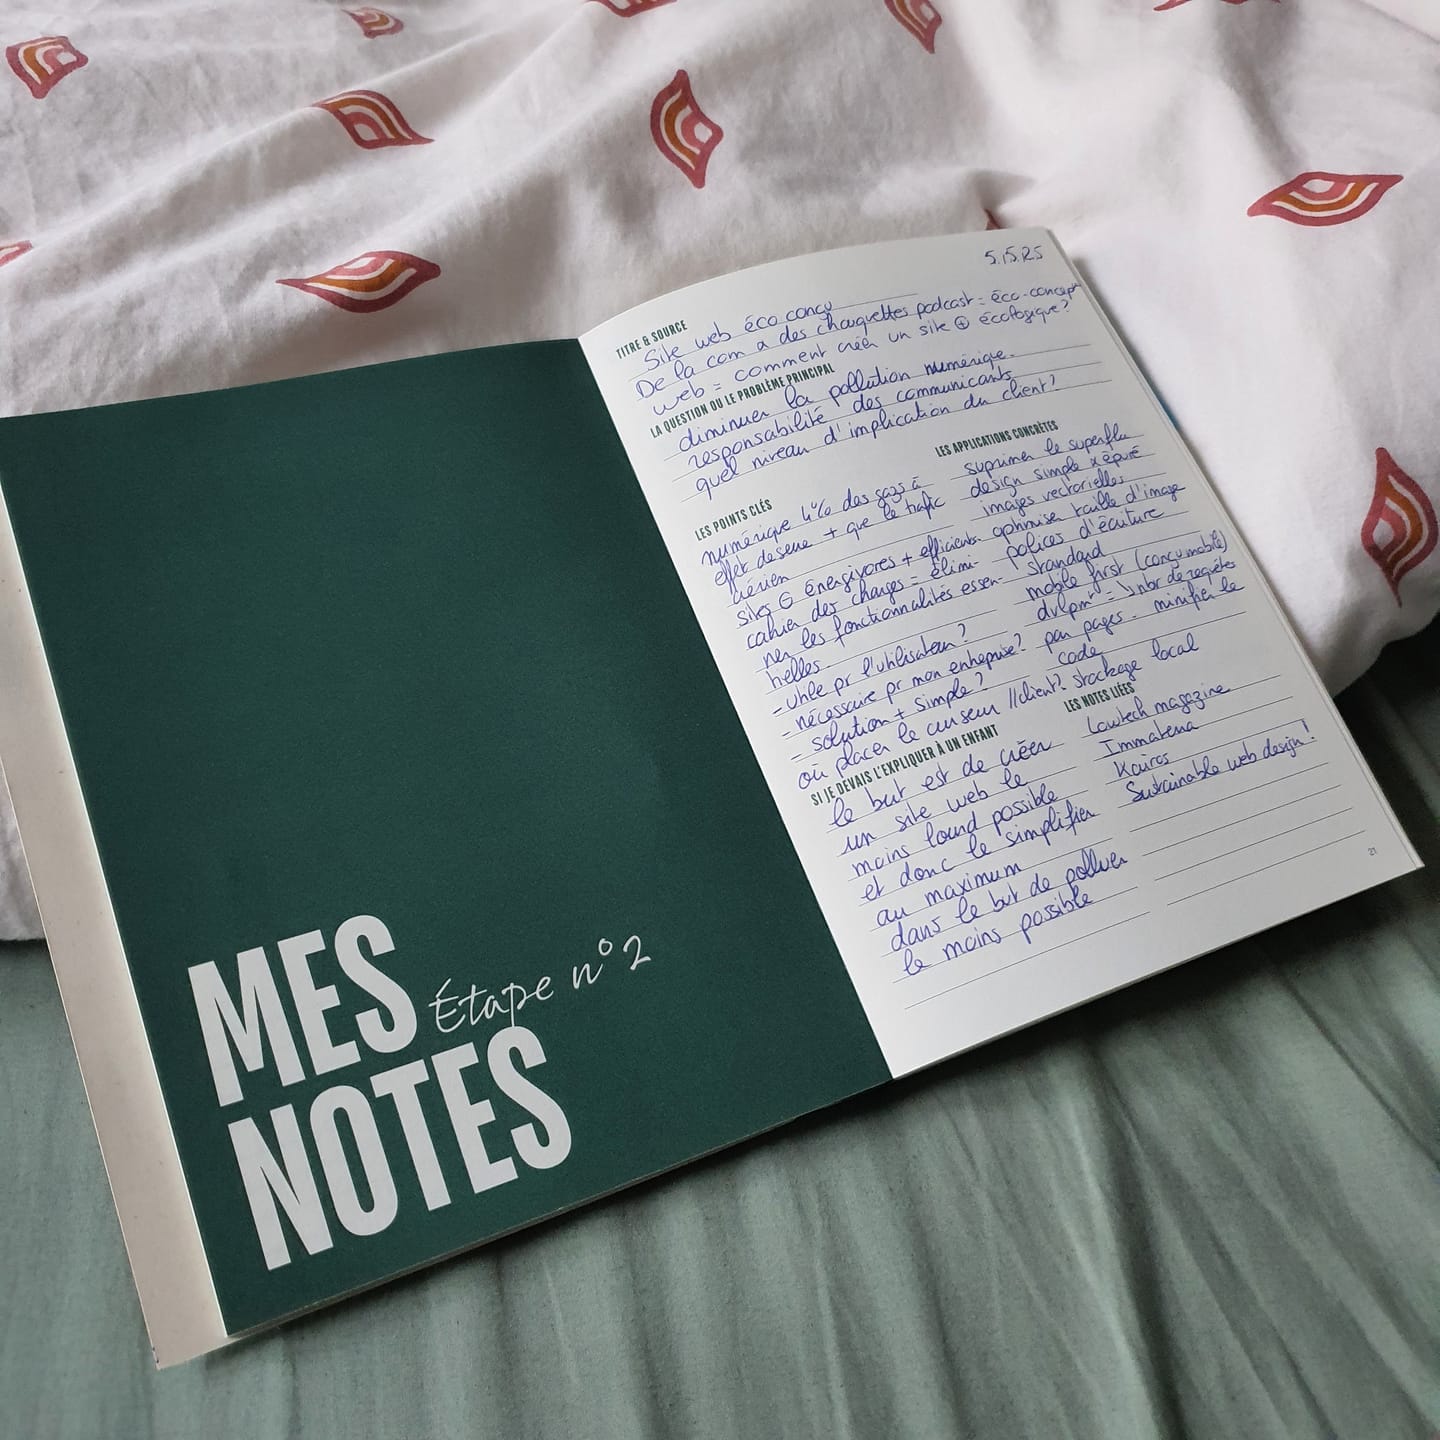 MES
Étape n°2
NOTES
5.15.25
TITRE & SOURCE
Site web éco conçu
De la com a des chauquettes podcast = éco-concept
web = comment créer un site ⊕ écologique?
LA QUESTION OU LE PROBLÈME PRINCIPAL
diminuer la pollution numérique.
responsabilité des communicants
quel niveau d'implication du client?
LES POINTS CLÉS
numérique 4% des gazs à
effet de serre + que le trafic
aérien
sites ⊖ énergivores + efficients.
cahier des charges = élimi-
ner les fonctionnalités essen-
tielles.
- Utile pr l'utilisateur?
- nécessaire pr mon entreprise?
- solution + simple?
où placer le curseur //client?
LES APPLICATIONS CONCRÈTES
suprimer le superflu
design simple x épuré
images vectorielles
optimiser taille d'image
polices d'écriture
standard
mobile first (conçu mobile)
dvlpmt = ↘ nbr de requêtes
par pages. minifier le
code
stockage local
SI JE DEVAIS L'EXPLIQUER À UN ENFANT
le but est de créer
un site web le
moins lourd possible
et donc le simplifier
au maximum
dans le but de polluer
le moins possible
LES NOTES LIÉES
Lowtech magazine
Immaterra
Kairos
Sustainable web design!
21